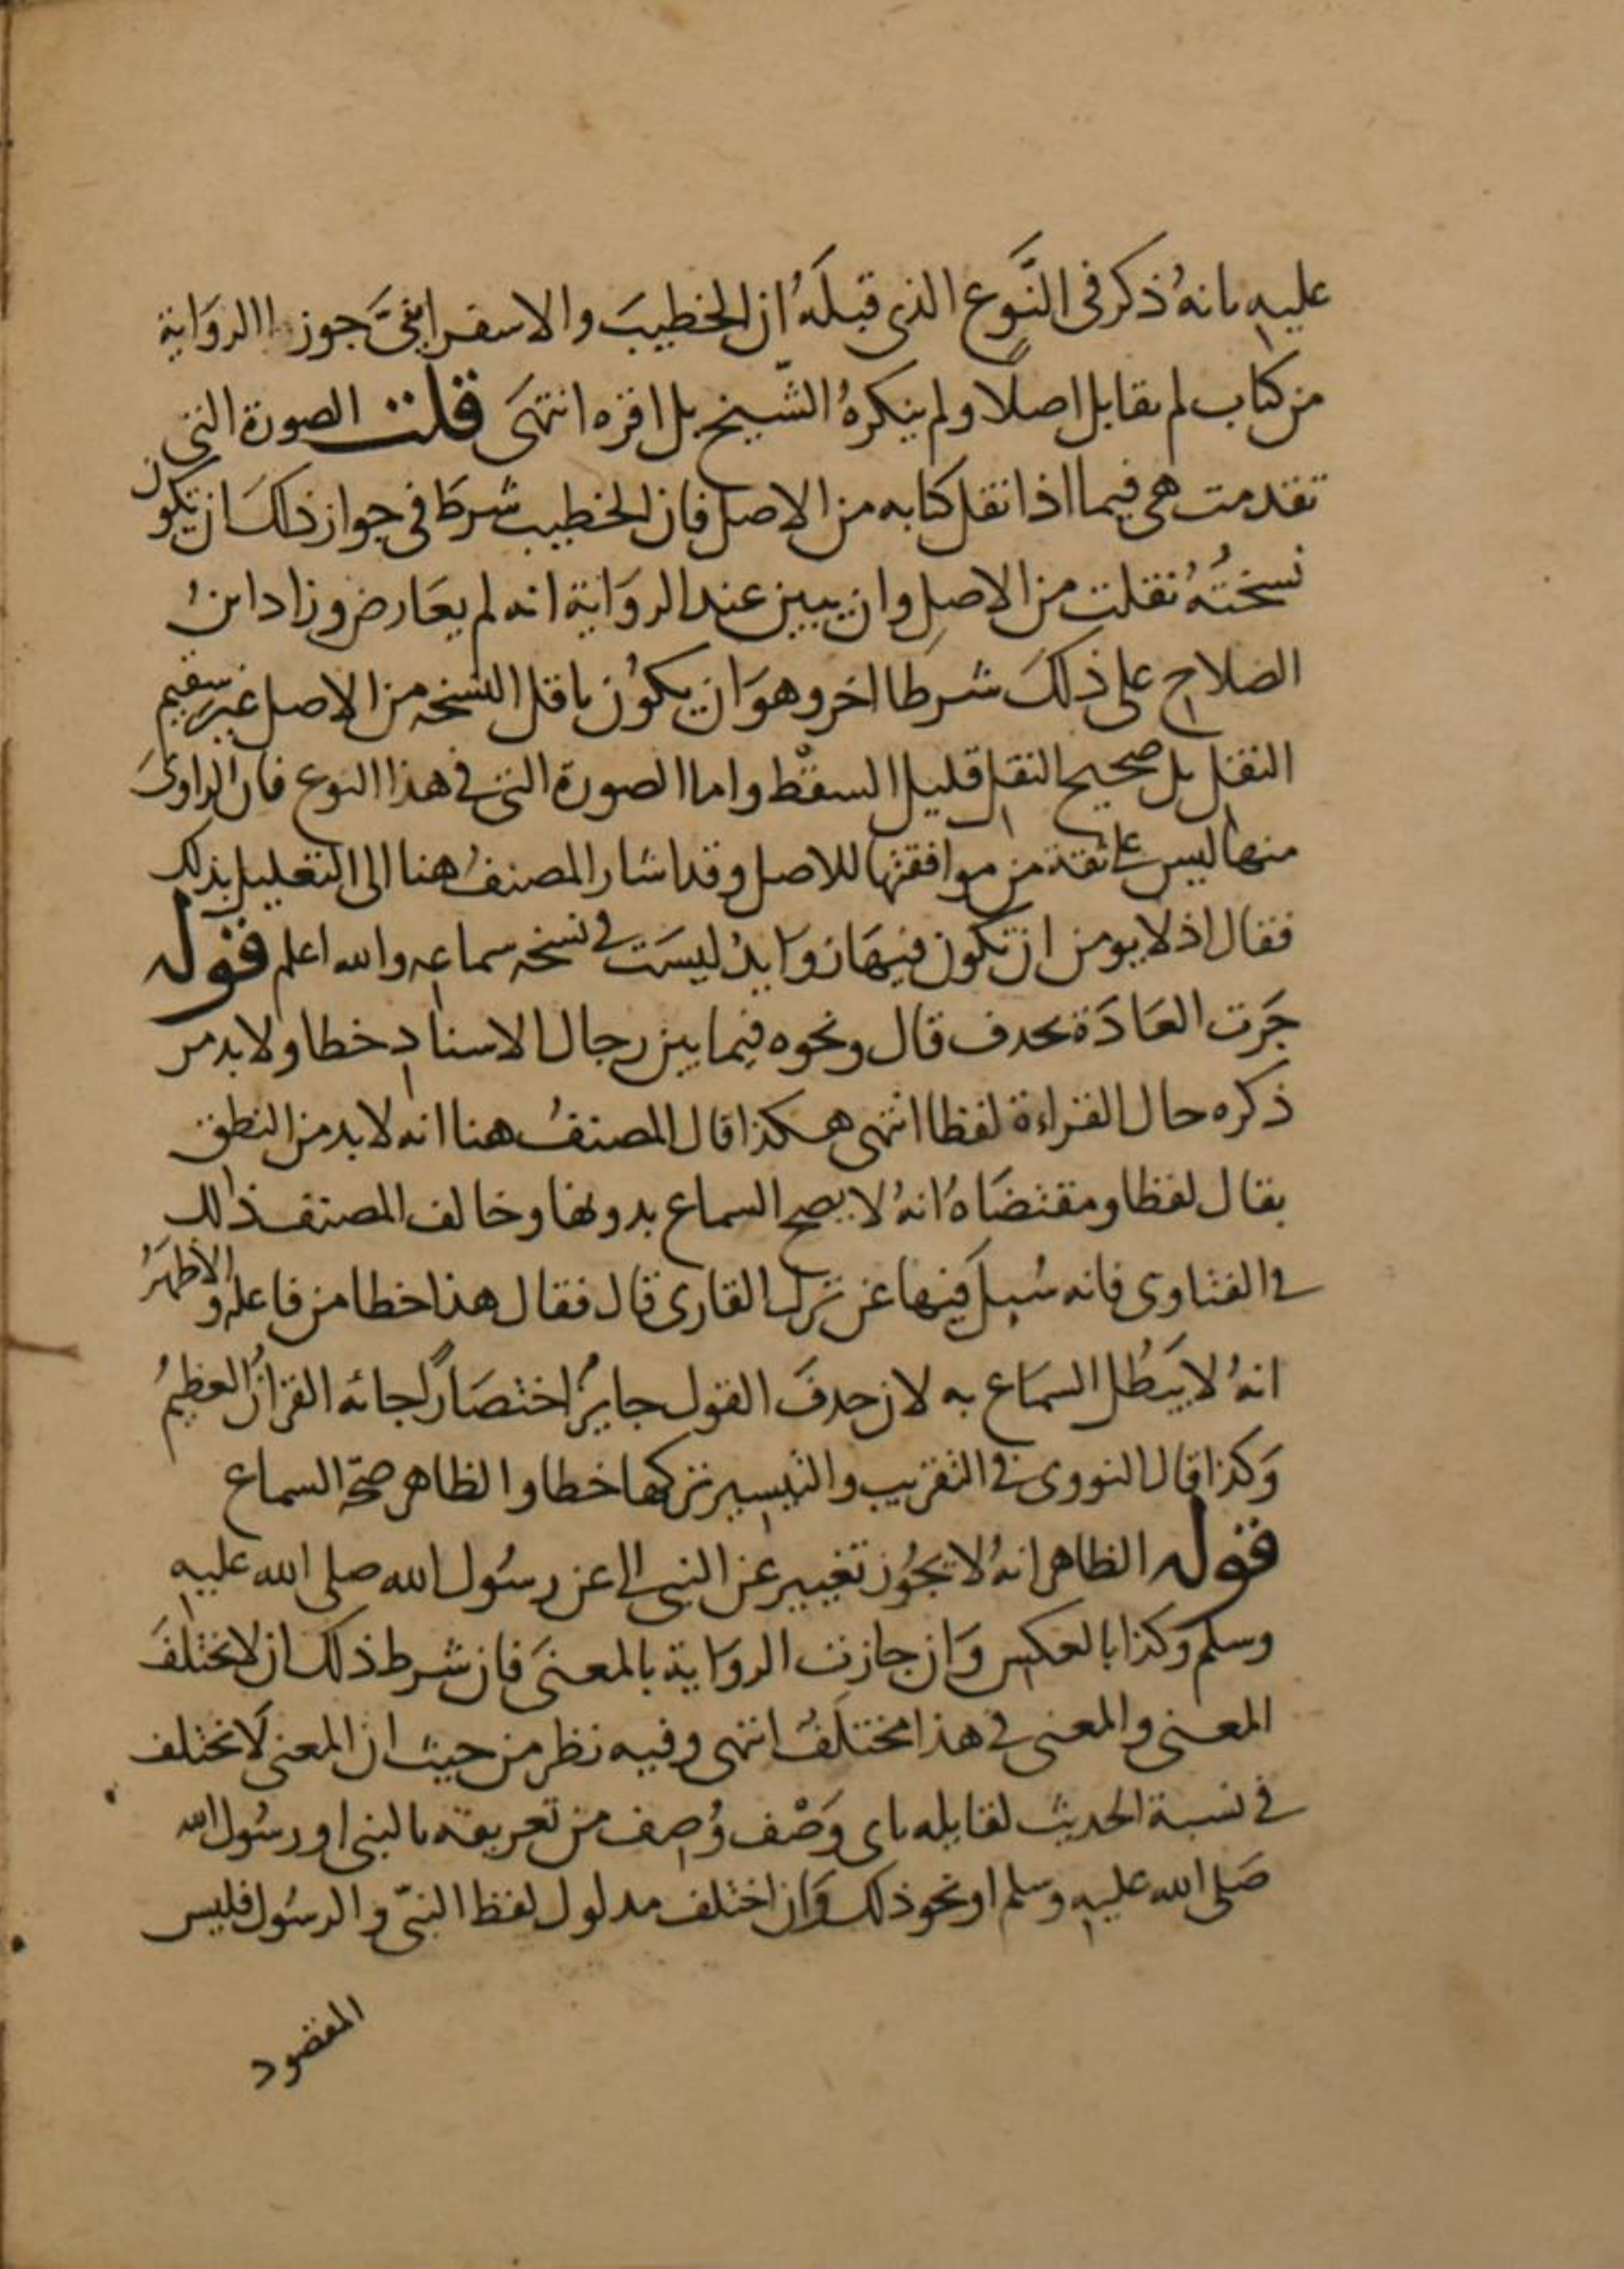 عليه بانهُ ذكر فى النَّوع الذى قبلَهُ ان الخطيبَ والاسفراينىَّ جوزا الروَاية
من كتاب لم يقابل اصلًا ولم ينكرهُ الشّيخ بل اقره انتهَى قلت الصورة التى
تقدمت هى فيما اذا نقل كتابه من الاصل فان الخطيب شرطَ فى جواز ذلكَ ان تكون
نسختُهُ نقلت من الاصلِ وان يبين عند الروَاية انه لم يعَارض وزاد ابنُ
الصلاح على ذلكَ شرطا اخر وهوَ ان يكوُن ناقل النسخه من الاصل غير سقيم
النقل بل صحيح النقل قليل السقْط واما الصورة التى فى هذا النوع فان الراوىَ
منها ليس على ثقة من موافقتها للاصل وقد اشار المصنفُ هنا الى التعليل بذلك
فقال اذ لا يومن ان تكون فيهَا زوَايدُ ليسَت فى نسخه سماعه والله اعلم قوله
جَرت العَادَة بحدف قال ونحوه فيما بين رجال الاسنادِ خطا ولا بد من
ذكره حال القراءة لفظا انتهى هكذا قال المصنفُ هنا انه لا بد من النطق
بقال لفظا ومقتضَاهُ انهُ لا يصح السماع بدونها وخالف المصنف ذلك
فى الفتاوى فانه سُيلَ فيها عن ترك القارى قال فقال هذا خطا من فاعله والاظهَرُ
انهُ لا يَبطُل السمَاع به لان حدفَ القول جايزُ اختصَارًا جا به القرانُ العظيمُ
وَكذا قال النووى فى التقريب والتيسير تركها خطا والظاهر صحّة السماع
قوله الظاهر انهُ لا يجُوز تغيير عن النبى الى عن رسُول الله صلى الله عليه
وسلم وَكذا بالعكس وَان جازت الروَاية بالمعنىَ فان شرط ذلك ان لا يختلفَ
المعنى والمعنى فى هذا مختلَفُ انتهى وفيه نظر من حيث ان المعنى لَا يختلف
فى نسبة الحديث لقايله باى وَصْف وُصِف من تعريفه بالنبى او رسُول الله
صَلى الله عليه وسلم او نحو ذلك وَان اختلف مدلول لفظ النبىّ والرسُول فليس
المقصود